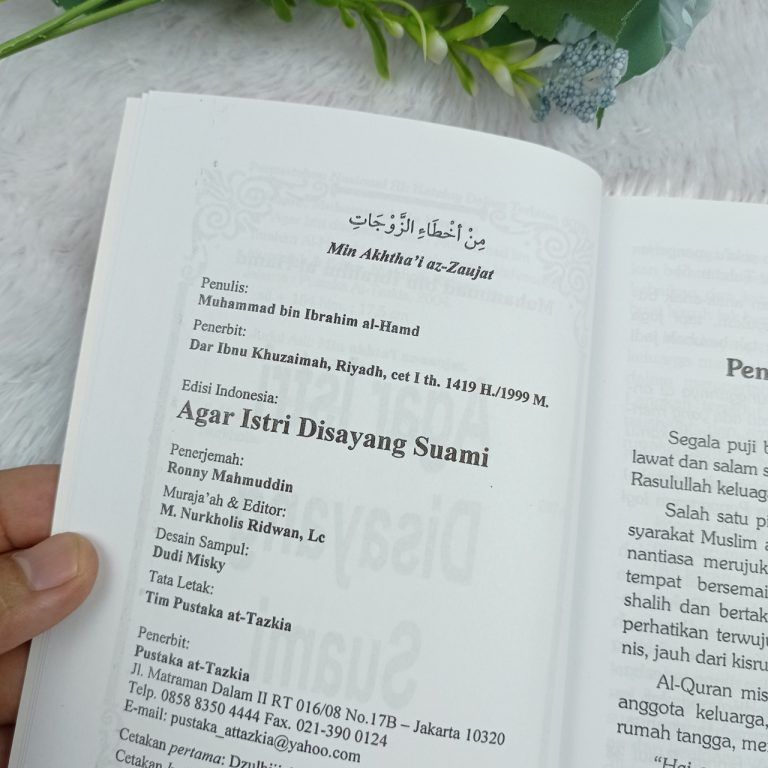 مِنْ أَخْطَاءِ الزَّوْجَاتِ
Min Akhtha'i az-Zaujat
Penulis:
Muhammad bin Ibrahim al-Hamd
Penerbit:
Dar Ibnu Khuzaimah, Riyadh, cet I th. 1419 H./1999 M.
Edisi Indonesia:
Agar Istri Disayang Suami
Penerjemah:
Ronny Mahmuddin
Muraja'ah & Editor:
M. Nurkholis Ridwan, Lc
Desain Sampul:
Dudi Misky
Tata Letak:
Tim Pustaka at-Tazkia
Penerbit:
Pustaka at-Tazkia
Jl. Matraman Dalam II RT 016/08 No.17B – Jakarta 10320
Telp. 0858 8350 4444 Fax. 021-390 0124
E-mail: pustaka_attazkia@yahoo.com
Cetakan pertama:
Cetakan
Pen
Segala puji
lawat dan salam
Rasulullah
Salah satu
syarakat Muslim
nantiasa merujuk
tempat bersemai
shalih dan
perhatikan
nis, jauh dari
Al-Quran
anggota keluarga,
rumah tangga,